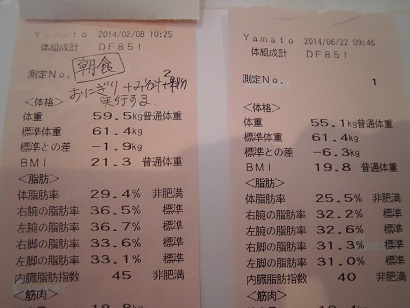 Yamato 2014/02/08 10:25
体組成計 DF851
測定No. 2
朝食
おにぎり+みそ汁+果物
実行する
<体格>
体重 59.5kg普通体重
標準体重 61.4kg
標準との差 -1.9kg
BMI 21.3 普通体重
<脂肪>
体脂肪率 29.4% 非肥満
右腕の脂肪率 36.5% 標準
左腕の脂肪率 36.7% 標準
右脚の脂肪率 33.6% 標準
左脚の脂肪率 33.1% 標準
内臓脂肪指数 45 非肥満
<筋肉>
Yamato 2014/06/22 09:46
体組成計 DF851
測定No. 1
<体格>
体重 55.1kg普通体重
標準体重 61.4kg
標準との差 -6.3kg
BMI 19.8 普通体重
<脂肪>
体脂肪率 25.5% 非肥満
右腕の脂肪率 32.2% 標準
左腕の脂肪率 32.6% 標準
右脚の脂肪率 31.3% 標準
左脚の脂肪率 31.0% 標準
内臓脂肪指数 40 非肥満
<筋肉>